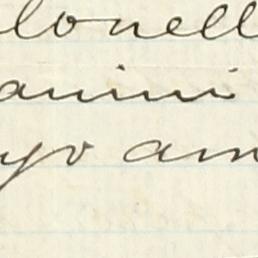 lonell
anini
yo am